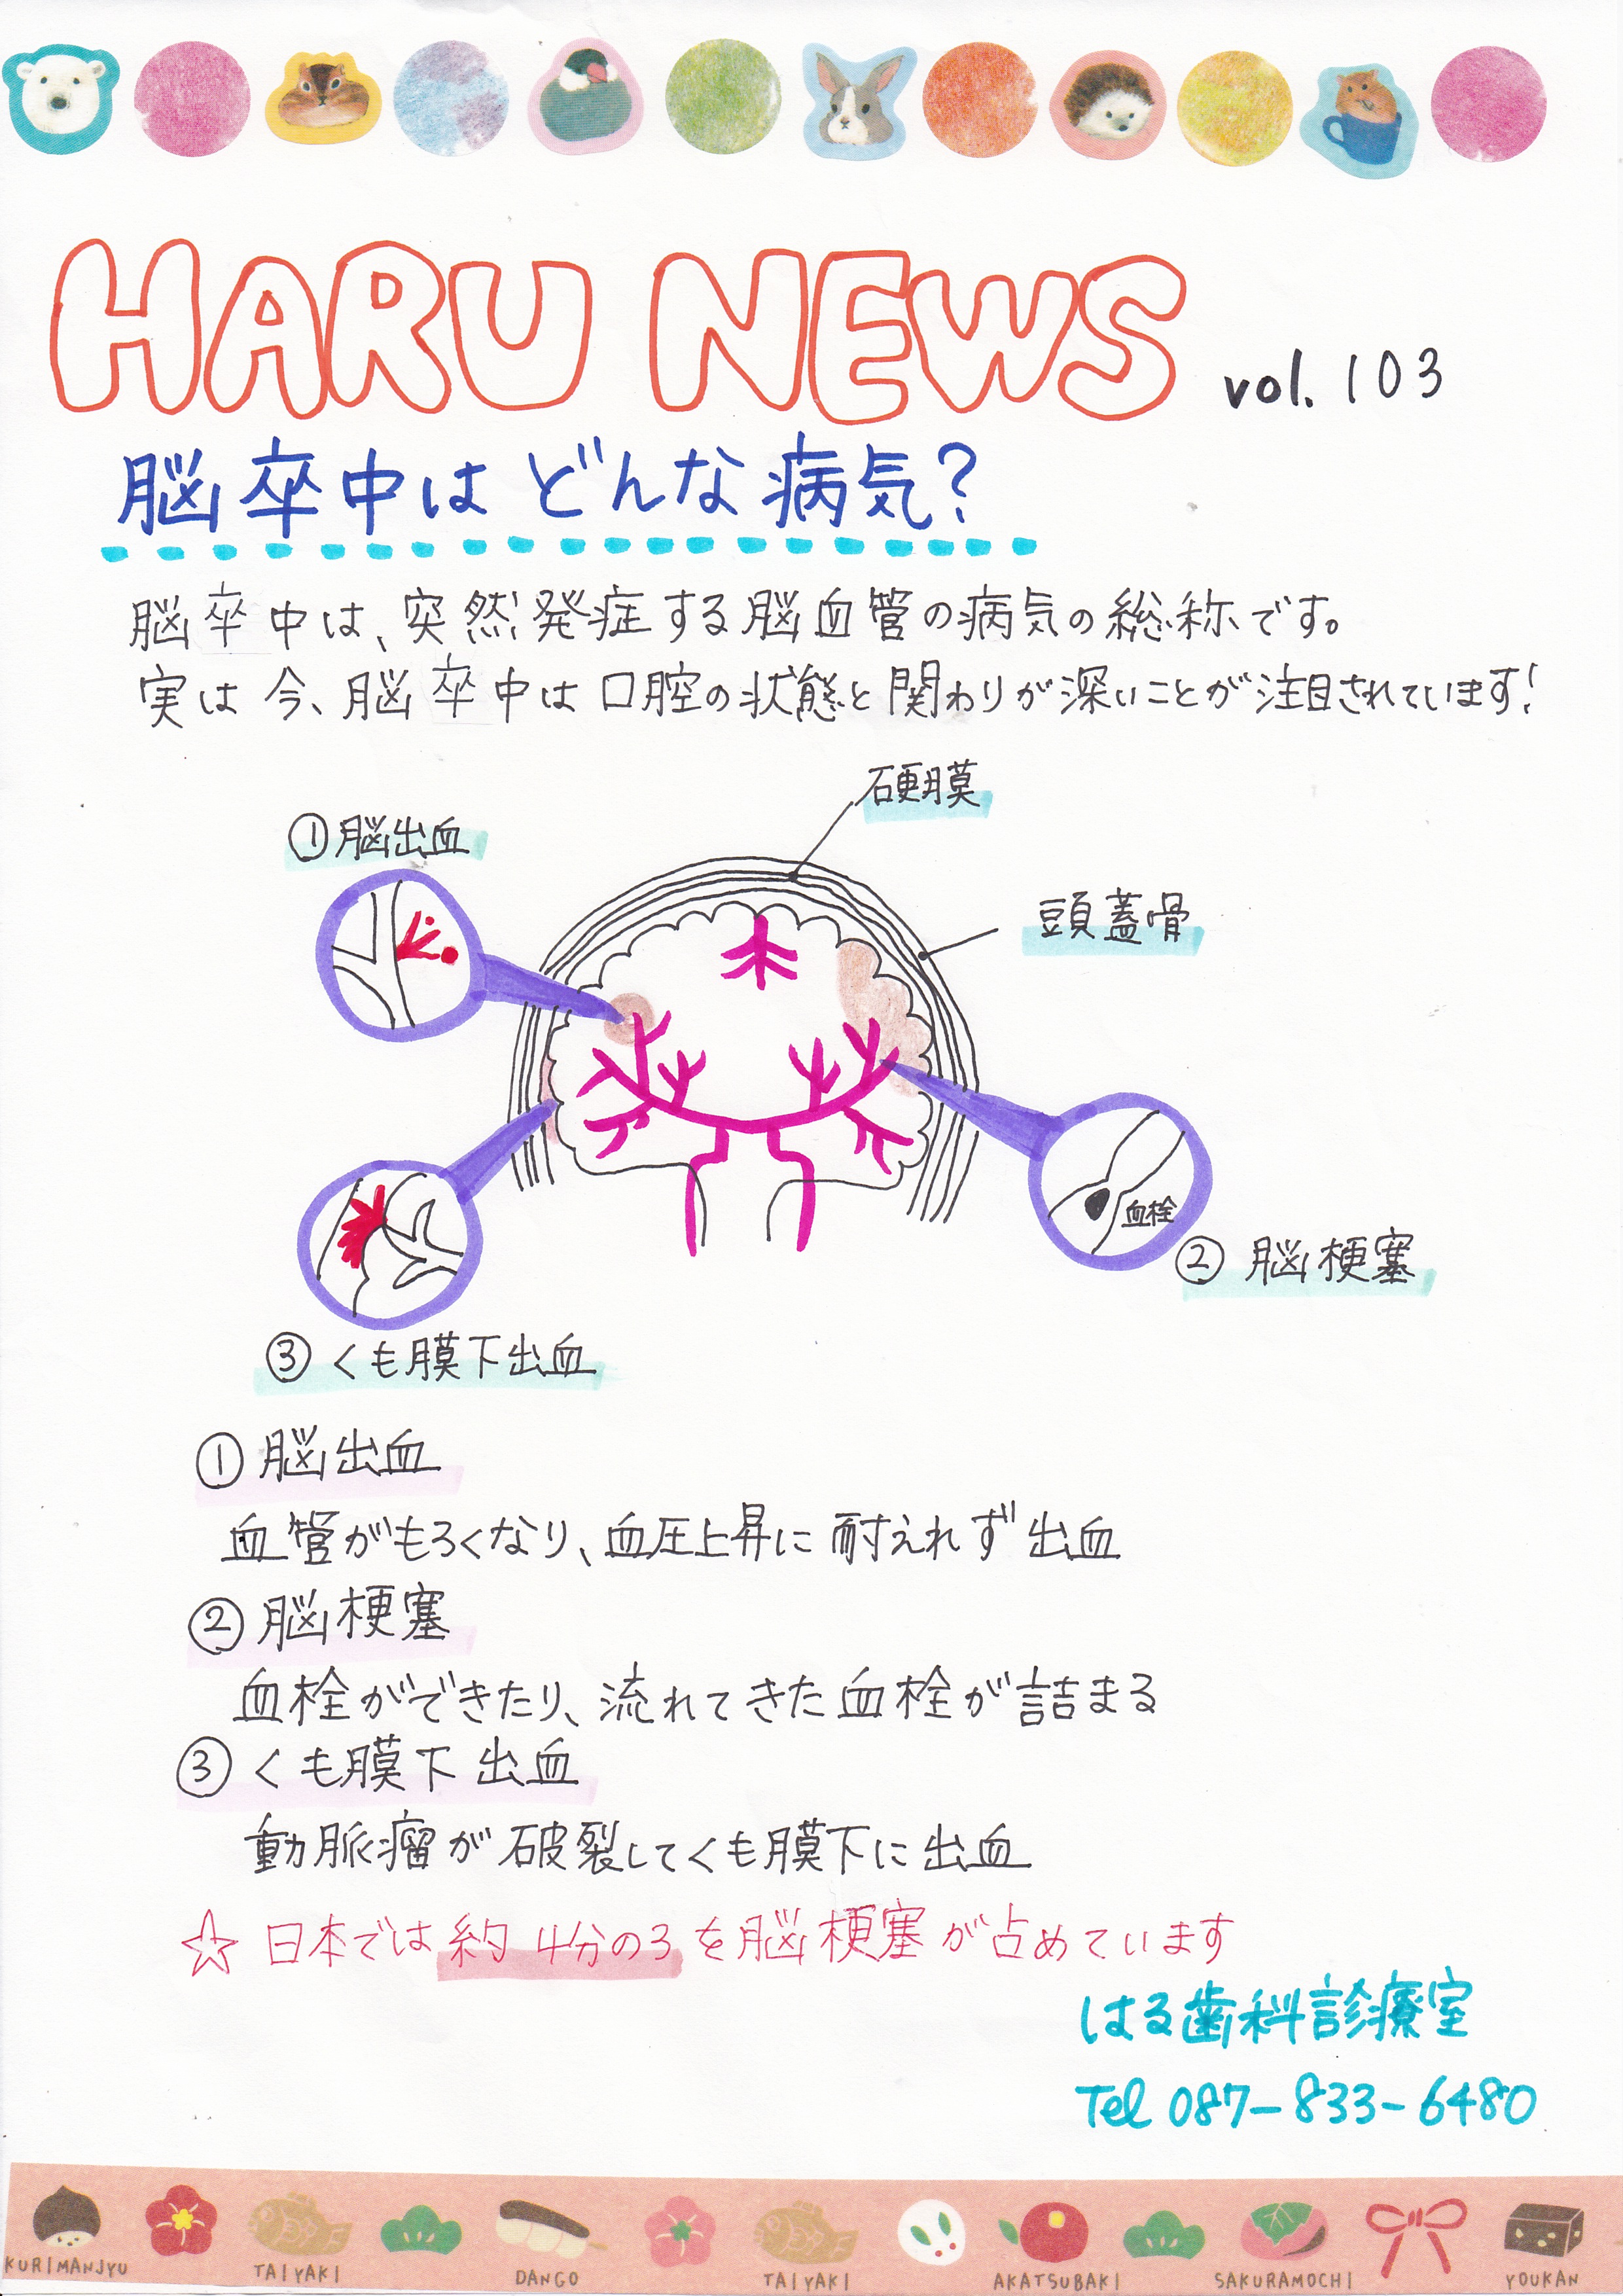 HARU NEWS vol. 103
脳卒中はどんな病気?
脳卒中は、突然発症する脳血管の病気の総称です。
実は今、脳卒中は口腔の状態と関わりが深いことが注目されています!
硬膜
①脳出血
頭蓋骨
血栓
② 脳梗塞
③ くも膜下出血
① 脳出血
血管がもろくなり、血圧上昇に耐えれず出血
② 脳梗塞
血栓ができたり、流れてきた血栓が詰まる
③ くも膜下出血
動脈瘤が破裂してくも膜下に出血
☆ 日本では約4分の3を脳梗塞が占めています
はる歯科診療室
Tel 087-833-6480
KURIMANJYU TAIYAKI DANGO TAIYAKI AKATSUBAKI SAKURAMOCHI YOUKAN